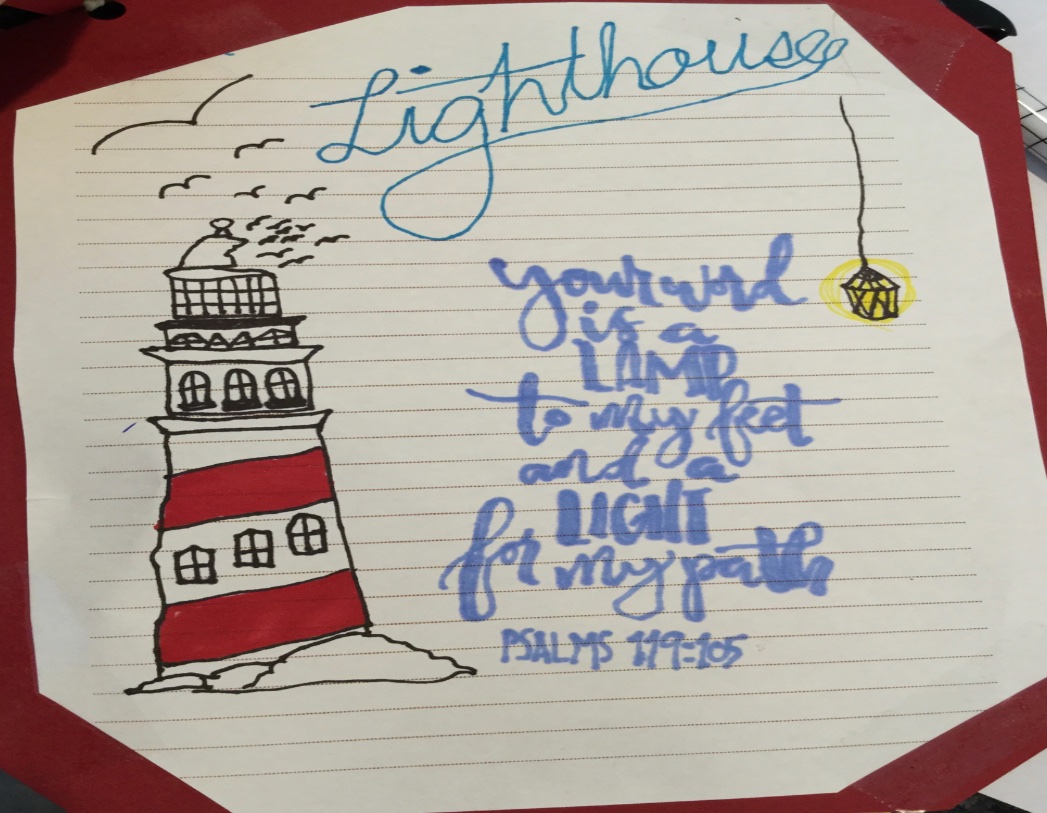 Lighthouse
your word
is a
LAMP
to my feet
and a
LIGHT
for my path
PSALMS 119:105